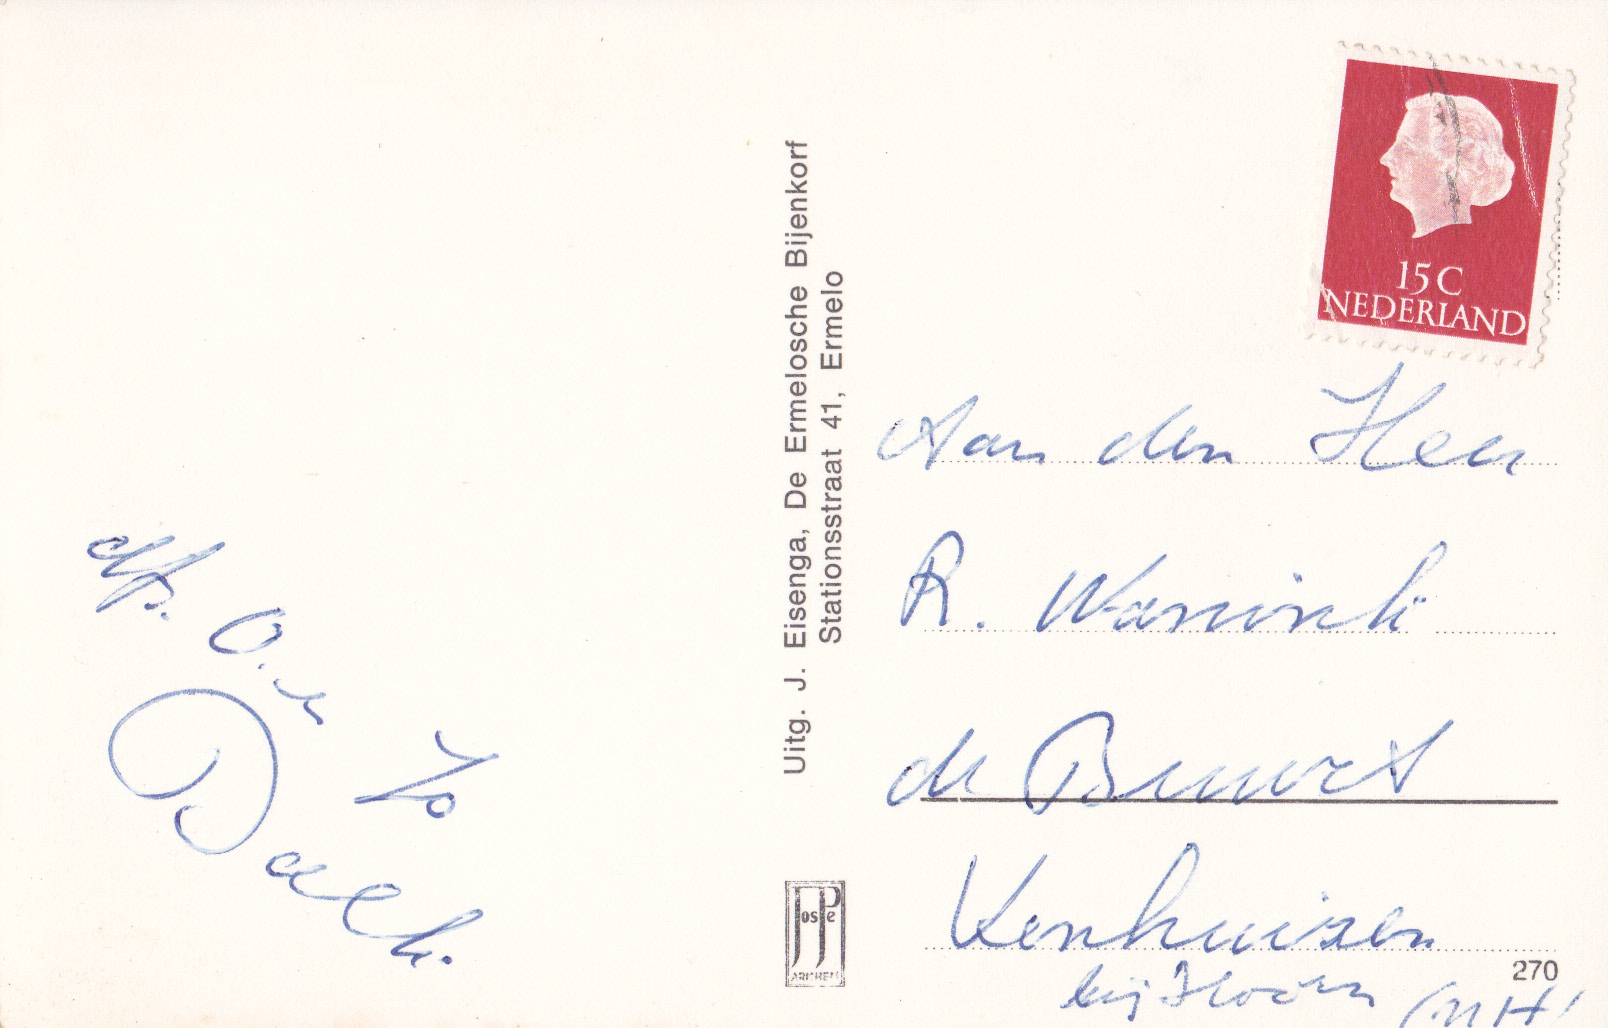 Afz. O. en
Jo
Uitg. J. Eisenga, De Ermelosche Bijenkorf
Stationsstraat 41, Ermelo
JosPe
ARNHEM
15C
NEDERLAND
Aan den Heer
R.
de Buurt
Venhuizen
bij Hoorn (NH)
270